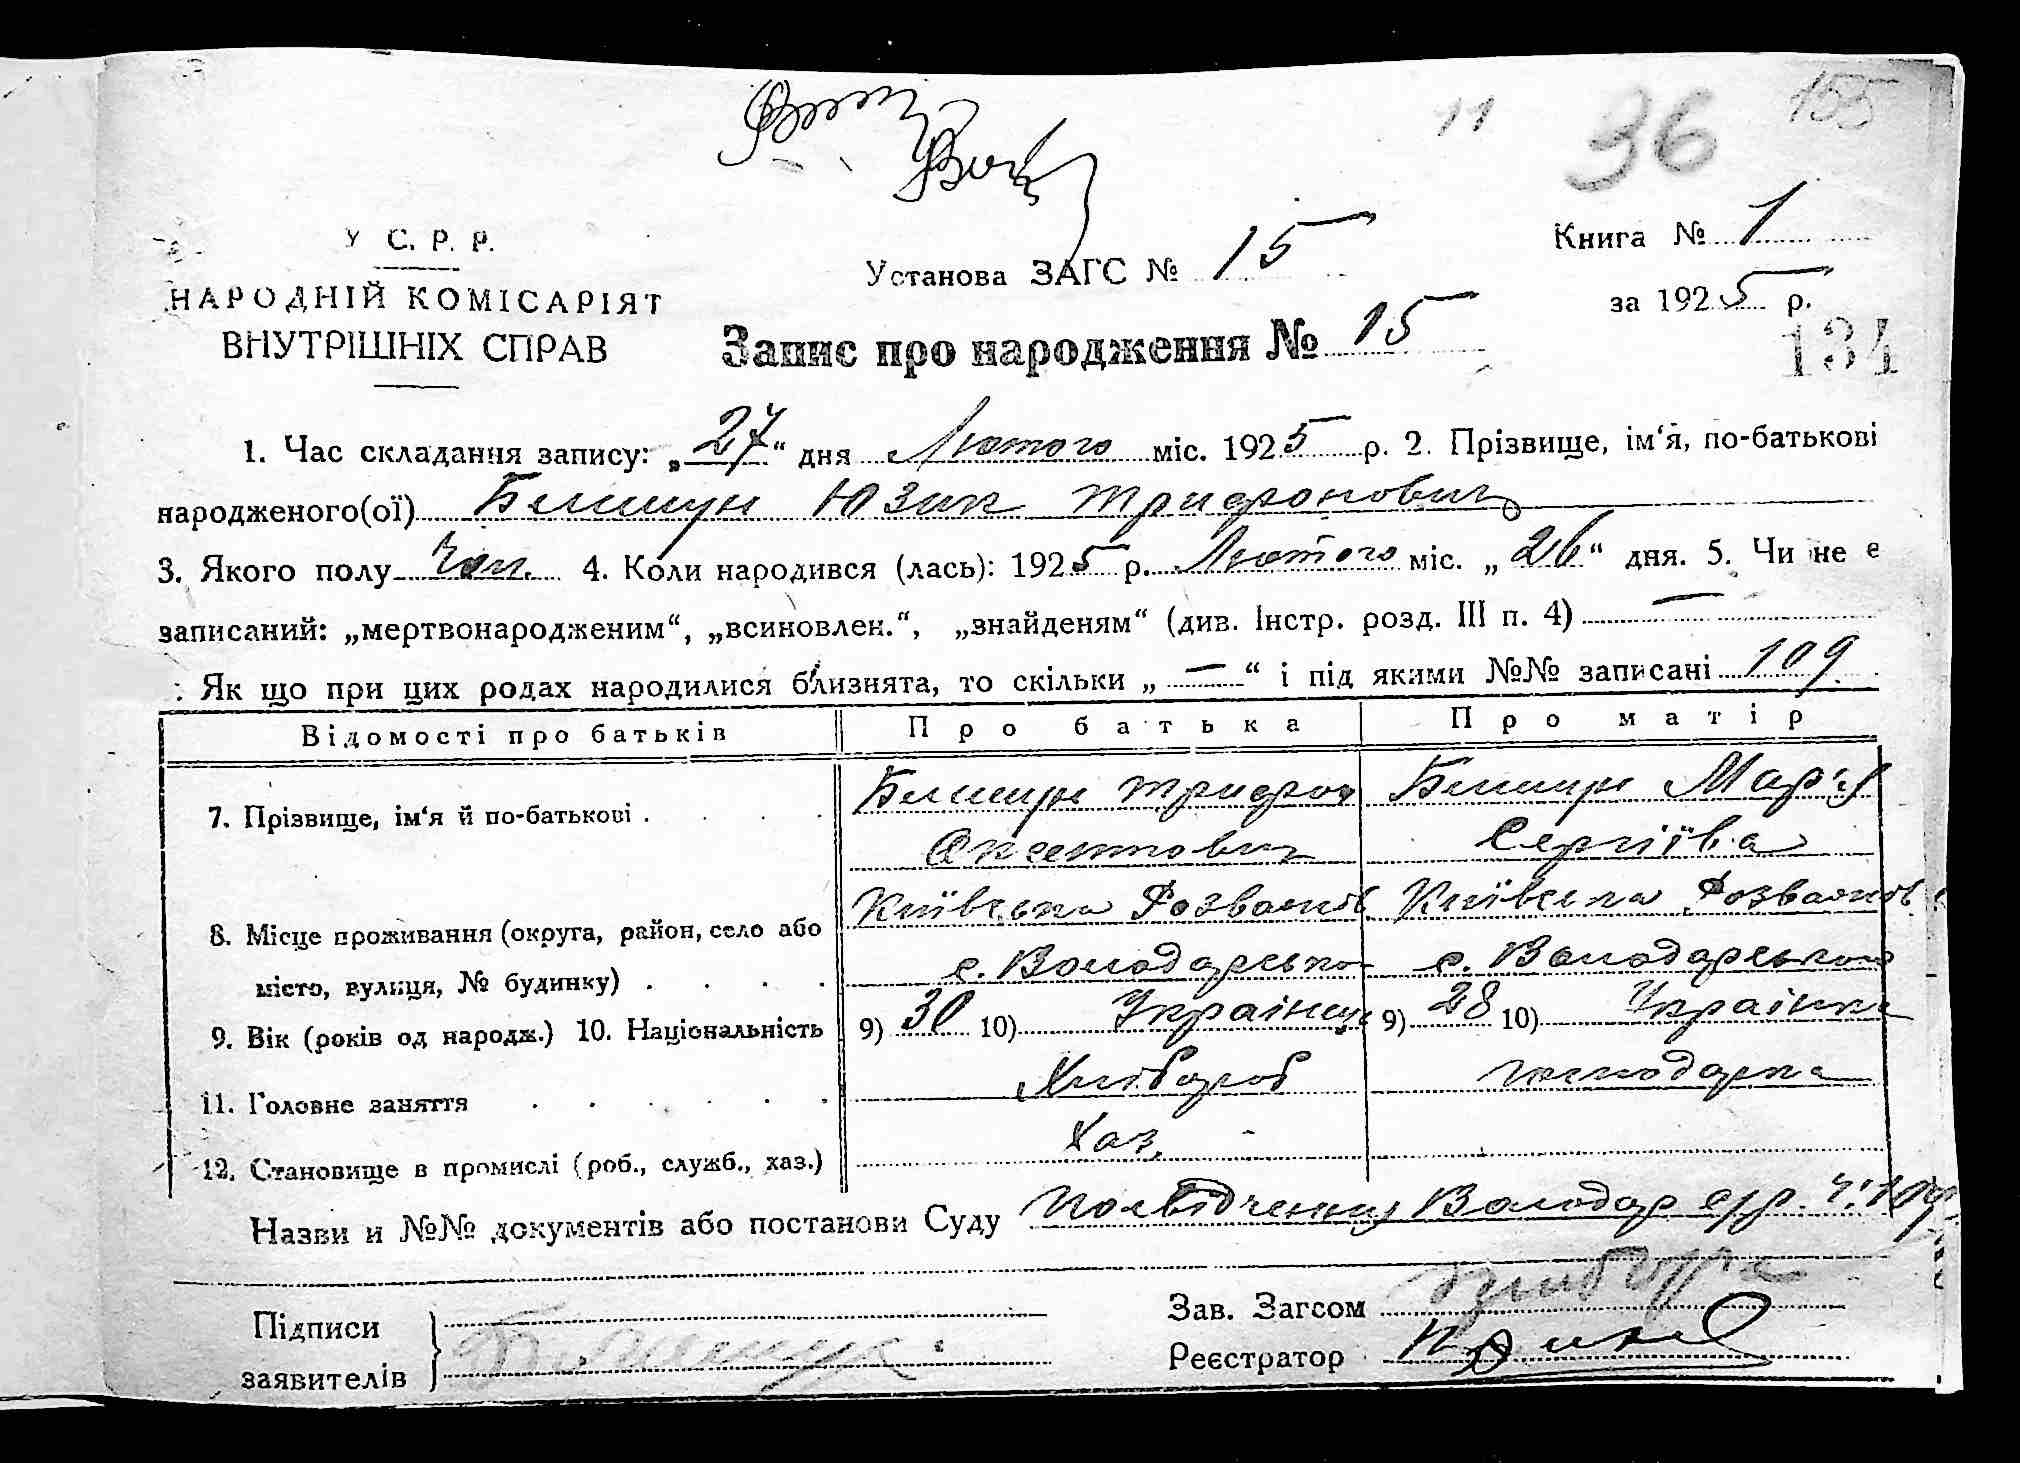 11 36 155
У С. Р. Р.
НАРОДНІЙ КОМІСАРІЯТ
ВНУТРІШНІХ СПРАВ
Установа ЗАГС № 15
Книга № 1
за 1925 р.
134
Запис про народження № 15
1. Час складання запису: „27“ дня Лютого міс. 1925 р. 2. Прізвище, ім‘я, по-батькові
народженого(ої) Юзик Трифонович
3. Якого полу Чол. 4. Коли народився (лась): 1925 р. Лютого міс. „26“ дня. 5. Чи не є
записаний: „мертвонародженим“, „всиновлен.“, „знайденям“ (див. Інстр. розд. III п. 4) —
Як що при цих родах народилися близнята, то скільки „—“ і під якими №№ записані 109
Відомості про батьків Про батька Про матір
7. Прізвище, ім‘я й по-батькові Трифон Мар'я
Оксентович Сергіїва
Київська Розважів Київська Розважів
8. Місце проживання (округа, район, село або
місто, вулиця, № будинку) с. Володарська с. Володарською
9. Вік (років од народж.) 10. Національність 9) 30 10) Українець 9) 28 10) Українка
11. Головне заняття Хлібороб господарка
12. Становище в промислі (роб., служб., хаз.) Хаз.
Назви и №№ документів або постанови Суду Посвідчення Володар с/р. ч. 109
Підписи
заявителів
Зав. Загсом
Реєстратор